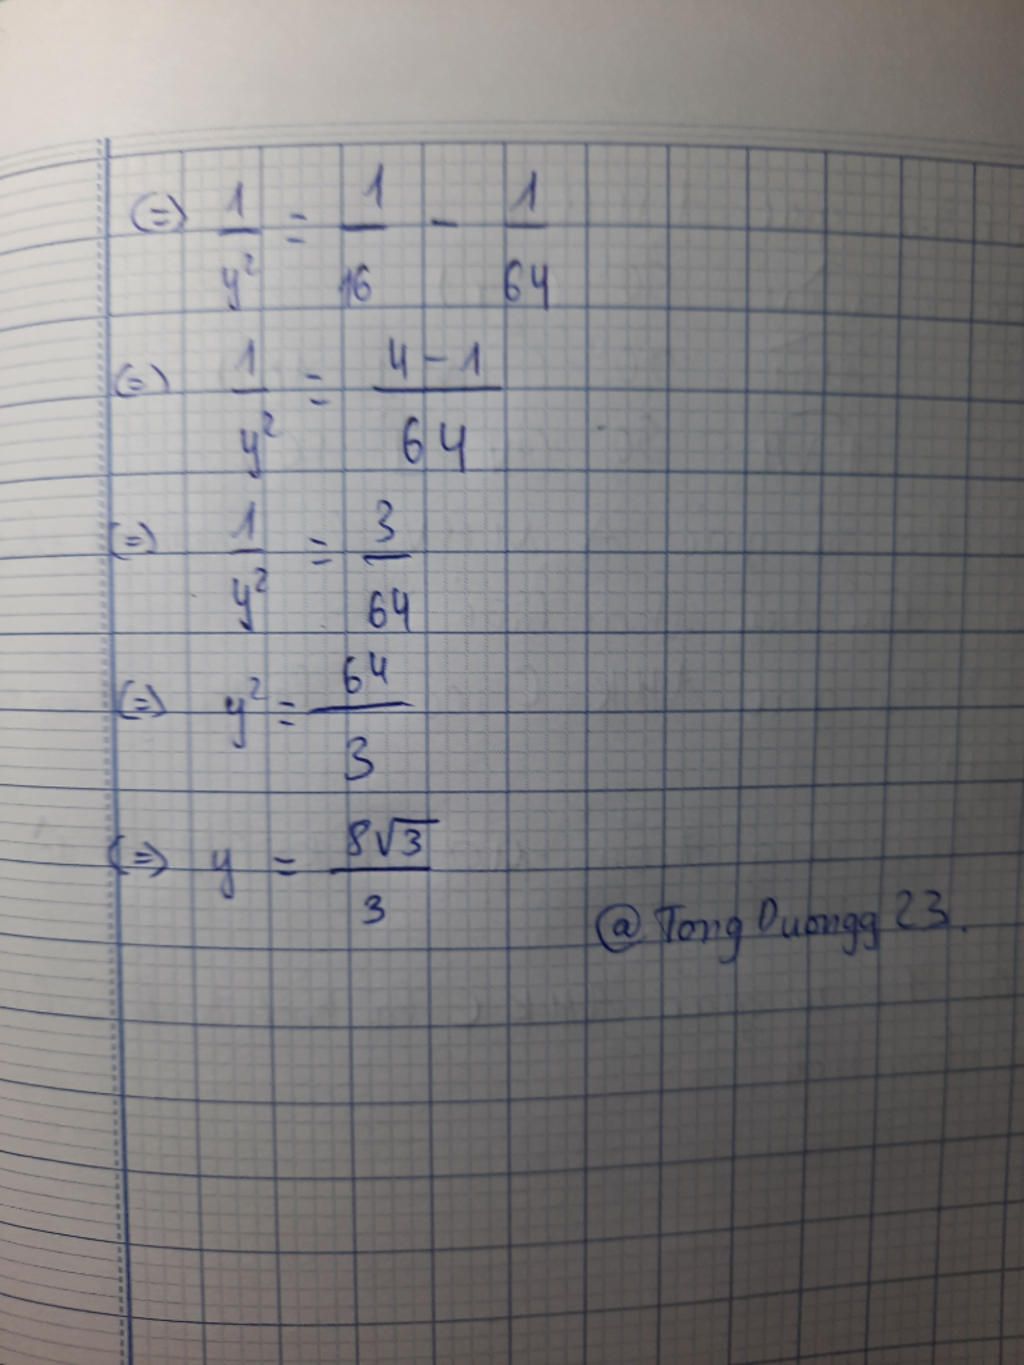 (=) 1/y² = 1/16 - 1/64
(=) 1/y² = 4-1/64
(=) 1/y² = 3/64
(=) y² = 64/3
(=) y = 8√3/3
@TongDuongg23.